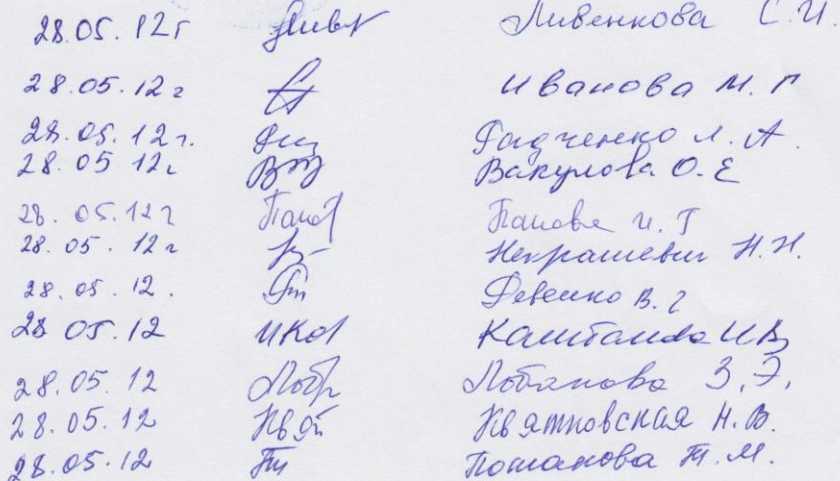 28.05.12г Ливенкова С.И.
28.05.12г Иванова М.Г
28.05.12г. Л.А.
28.05 12г Вакулова О.Е
28.05.12г Панов Панова И.Г
28.05.12г Некрашевич Н.Н.
28.05.12. В.Г
28 05.12 ИКов И В
28.05.12 Лобр Лобанова З.Э.
28.05.12 Квят Квятковская Н.В.
28.05.12 Потапова Т.М.